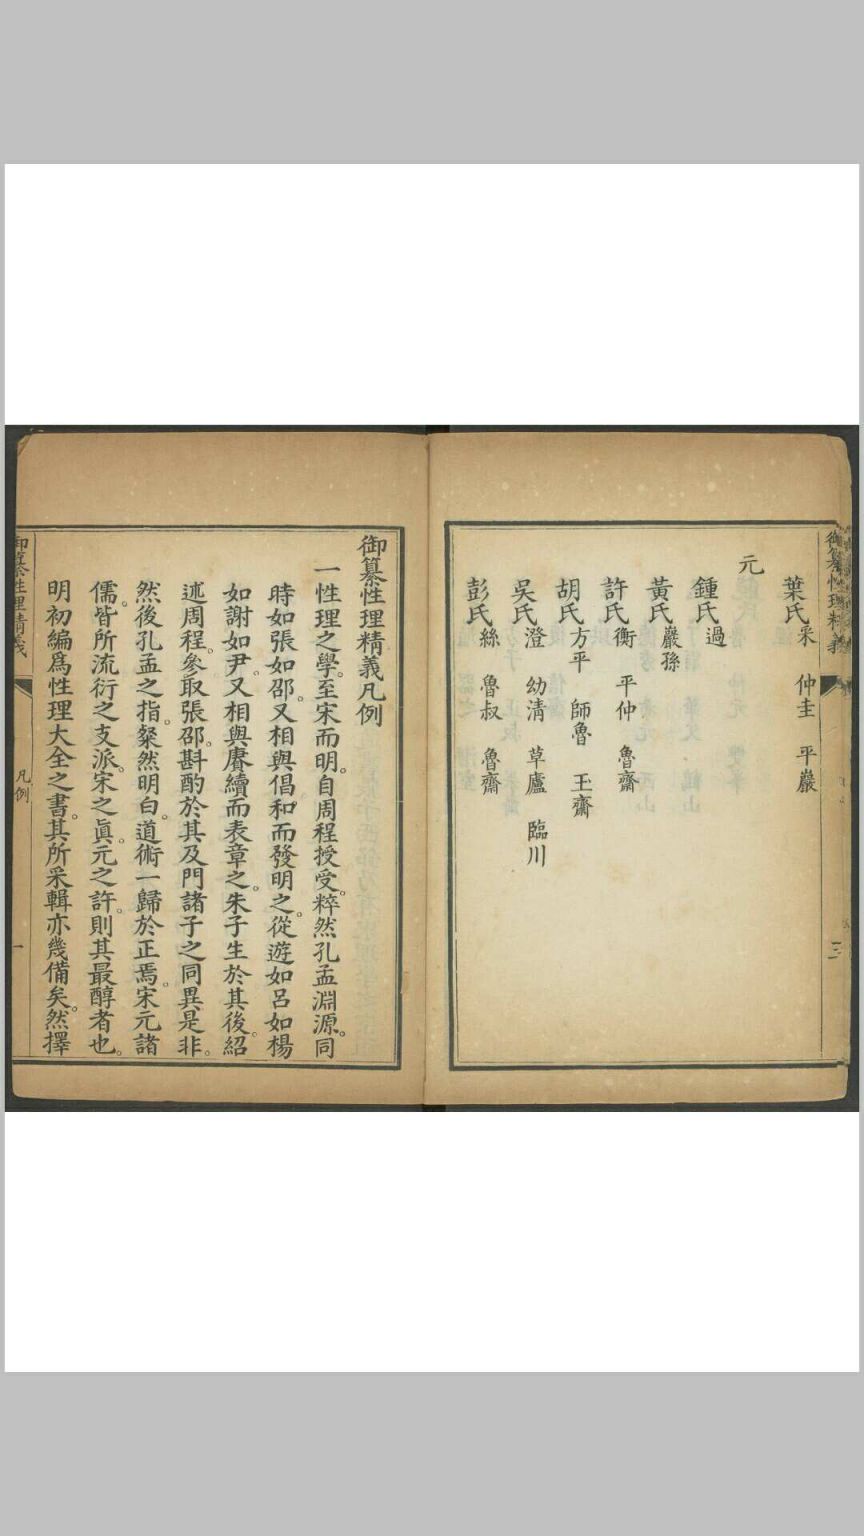 御纂性理精義
三
葉氏采 仲圭 平巖
元
鍾氏過
黃氏巖孫
許氏衡 平仲 魯齋
胡氏方平 師魯 玉齋
吳氏澄 幼清 草廬 臨川
彭氏絲 魯叔 魯齋
御纂性理精義凡例
一性理之學。至宋而明。自周程授受。粹然孔孟淵源。同
時如張如邵。又相與倡和而發明之。從遊如呂如楊
如謝如尹。又相與賡續而表章之。朱子生於其後。紹
述周程。參取張邵。斟酌於其及門諸子之同異是非。
然後孔孟之指。粲然明白。道術一歸於正焉。宋元諸
儒。皆所流衍之支派。宋之眞。元之許。則其最醇者也。
明初編爲性理大全之書。其所采輯亦幾備矣。然擇
御纂性理精義
凡例
一